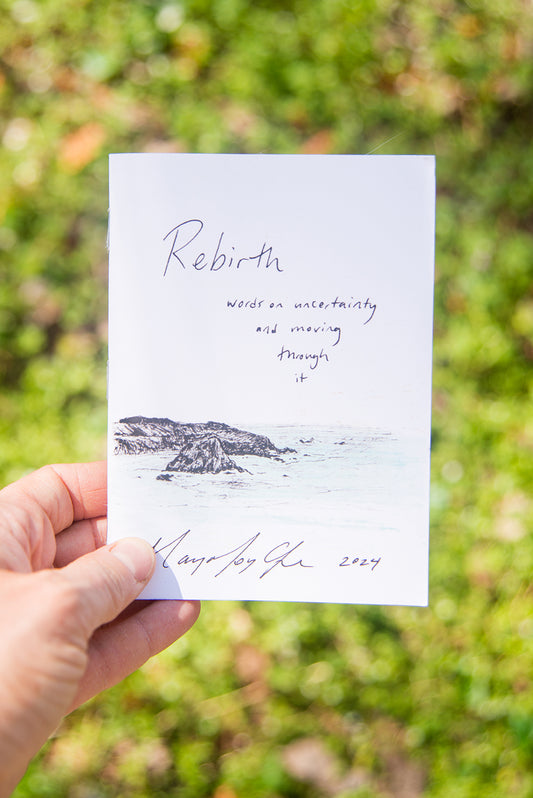 Rebirth
words on uncertainty
and moving
through
it
2024